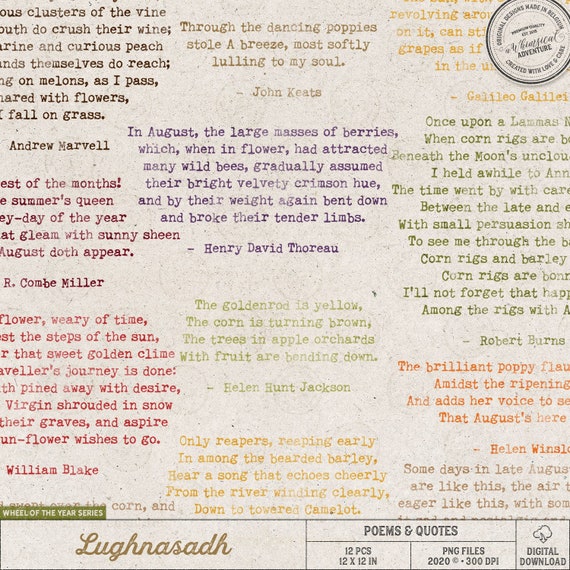 ous clusters of the vine
outh do crush their wine;
arine and curious peach
ands themselves do reach;
ng on melons, as I pass,
nared with flowers,
I fall on grass.
Andrew Marvell
est of the months!
e summer's queen
ey-day of the year
at gleam with sunny sheen
August doth appear.
R. Combe Miller
flower, weary of time,
est the steps of the sun,
r that sweet golden clime
aveller's journey is done:
th pined away with desire,
Virgin shrouded in snow
their graves, and aspire
un-flower wishes to go.
William Blake
corn, and
Through the dancing poppies
stole A breeze, most softly
lulling to my soul.
- John Keats
In August, the large masses of berries,
which, when in flower, had attracted
many wild bees, gradually assumed
their bright velvety crimson hue,
and by their weight again bent down
and broke their tender limbs.
- Henry David Thoreau
The goldenrod is yellow,
The corn is turning brown,
The trees in apple orchards
With fruit are bending down.
- Helen Hunt Jackson
Only reapers, reaping early
In among the bearded barley,
Hear a song that echoes cheerly
From the river winding clearly,
Down to towered Camelot.
revolving aroun
on it, can sti
grapes as if
in the u
- Galileo Galilei
Once upon a Lammas N
When corn rigs are b
Beneath the Moon's uncloud
I held awhile to Ann
The time went by with care
Between the late and e
With small persuasion sh
To see me through the ba
Corn rigs and barley
Corn rigs are bonn
I'll not forget that happ
Among the rigs with A
- Robert Burns
The brilliant poppy flau
Amidst the ripening
And adds her voice to se
That August's here
- Helen Winslo
Some days in late August
are like this, the air t
eager like this, with som
ORIGINAL DESIGNS MADE IN BELGIUM
PREMIUM QUALITY
Whimsical
ADVENTURE
CREATED WITH LOVE & CARE
WHEEL OF THE YEAR SERIES
Lughnasadh
POEMS & QUOTES
12 PCS
12 X 12 IN
PNG FILES
2020 © • 300 DPI
DIGITAL
DOWNLOAD